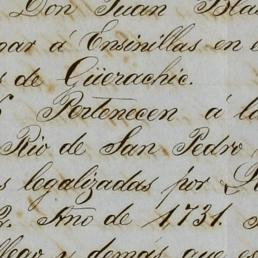 Don Juan Blas
nar á Ensinillas en e
s de Güerachic.
Pertenecen á la
Rio de San Pedro
s legalizadas por
Año de 1,731.
llego y demás que es